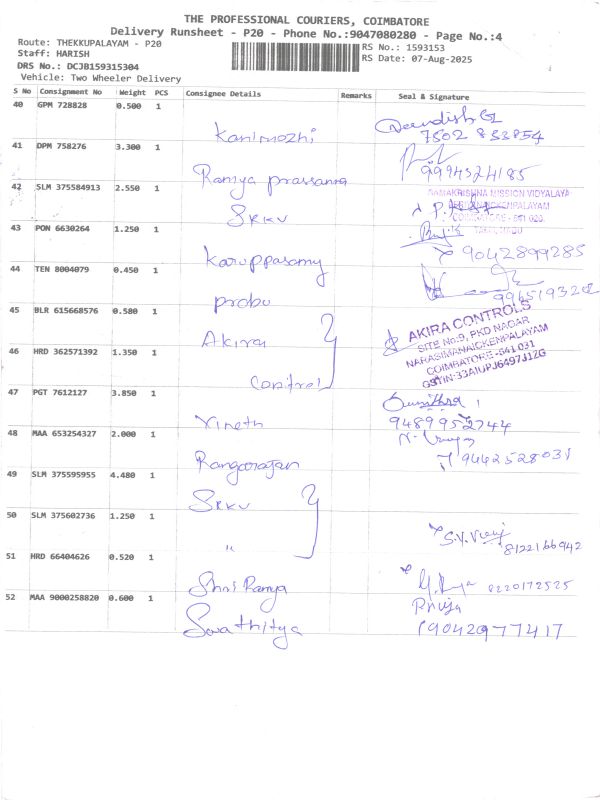 THE PROFESSIONAL COURIERS, COIMBATORE
Delivery Runsheet - P20 - Phone No.:9047080280 - Page No.:4
Route: THEKKUPALAYAM - P20
RS No.: 1593153
Staff: HARISH
RS Date: 07-Aug-2025
DRS No.: DCJB159315304
Vehicle: Two Wheeler Delivery
S No Consignment No Weight PCS Consignee Details Remarks Seal & Signature
40 GPM 728828 0.500 1
Kanimozhi 7502 833854
41 DPM 758276 3.300 1
Ramya prassanna 9994324185
42 SLM 375584913 2.550 1
SRKV
RAMAKRISHNA MISSION VIDYALAYA
COIMBATORE - 641 020.
TAMIL NADU
43 PON 6630264 1.250 1
Karuppasamy 9042899285
44 TEN 8004079 0.450 1
prabu
45 BLR 615668576 0.580 1
Akira
AKIRA CONTROLS
SITE No:9, PKD NAGAR
NARASIMANAICKENPALAYAM
COIMBATORE-641 031
GSTIN-33AIUPJ6497J1ZG
46 HRD 362571392 1.350 1
Control
47 PGT 7612127 3.850 1
Vineth 9489952744
48 MAA 653254327 2.000 1
Rangarajan 9442528031
49 SLM 375595955 4.480 1
SRKV
50 SLM 375602736 1.250 1
" S.V. 8122166942
51 HRD 66404626 0.520 1
Shri Ramya 8220172525
52 MAA 9000258820 0.600 1
Priya
Swathitya 9042977417